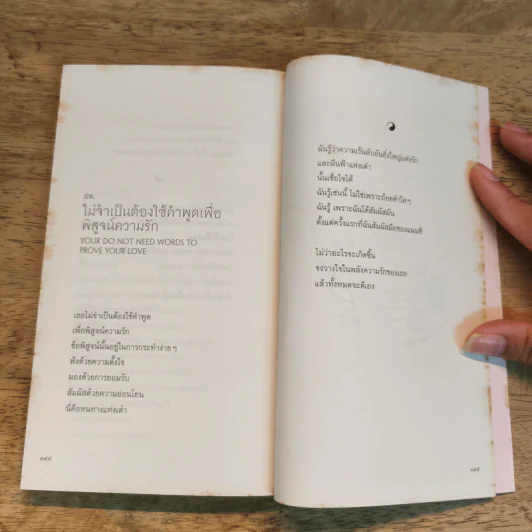 ๕๒.
ไม่จำเป็นต้องใช้คำพูดเพื่อ
พิสูจน์ความรัก
YOUR DO NOT NEED WORDS TO
PROVE YOUR LOVE
เธอไม่จำเป็นต้องใช้คำพูด
เพื่อพิสูจน์ความรัก
ข้อพิสูจน์นั้นอยู่ในการกระทำง่ายๆ
ฟังด้วยความตั้งใจ
มองด้วยการยอมรับ
สัมผัสด้วยความอ่อนโยน
นี่คือหนทางแห่งเต๋า
ฉันรู้ว่าความเร้นลับอันยิ่งใหญ่แห่งรัก
และผืนฟ้าแห่งเต๋า
นั้นเชื่อใจได้
ฉันรู้เช่นนี้ ไม่ใช่เพราะถ้อยคำใดๆ
ฉันรู้ เพราะฉันได้สัมผัสมัน
ตั้งแต่ครั้งแรกที่ฉันสัมผัสมือของแมนซี
ไม่ว่าอะไรจะเกิดขึ้น
จงวางใจในพลังความรักของเธอ
แล้วทั้งหมดจะดีเอง